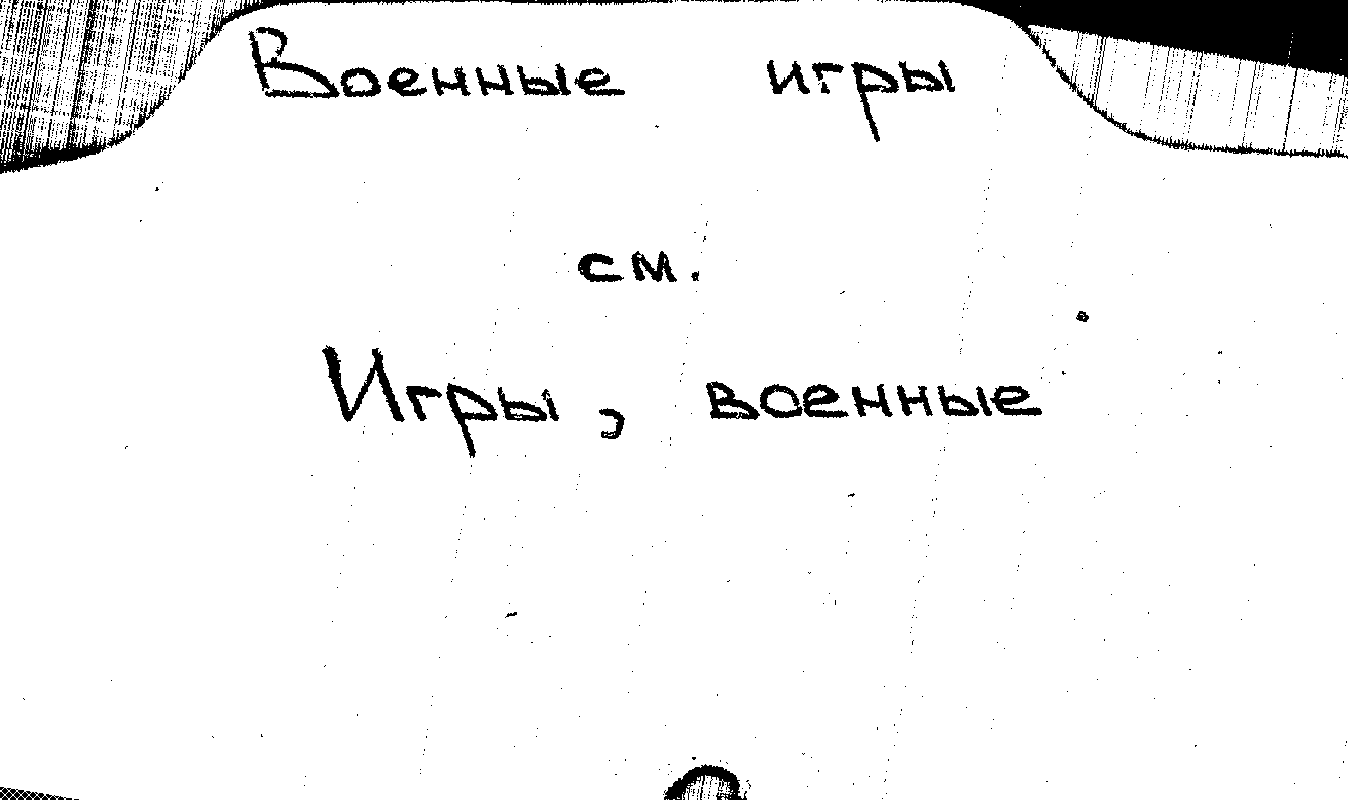 Военные игры
см.
Игры, военные